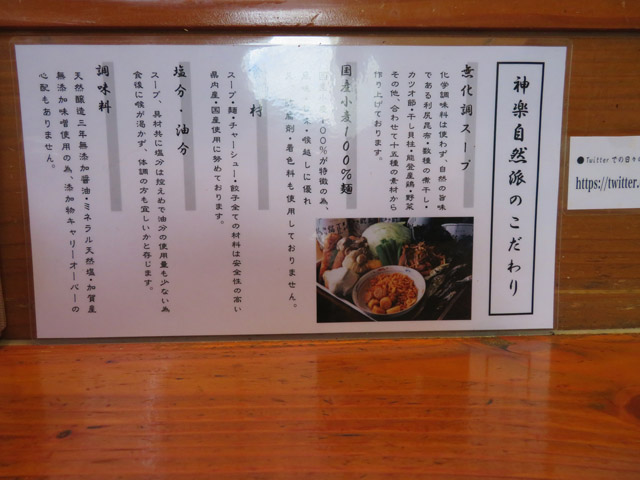 神楽自然派のこだわり
無化調スープ
化学調味料は使わず、自然の旨味
である利尻昆布・数種の煮干し・
カツオ節・干し貝柱・能登産鶏・野菜
その他、合わせて十五種の素材から
作り上げております。
国産小麦100%麺
00%が特徴の為、
喉越しに優れ
剤・着色料も使用しておりません。
材
スープ・麺・チャーシュー・餃子全ての材料は安全性の高い
県内産・国産使用に努めております。
塩分・油分
スープ、具材共に塩分は控えめで油分の使用量も少ない為
食後に喉が渇かず、体調の方も宜しいかと存じます。
調味料
天然醸造三年無添加醤油・ミネラル天然塩・加賀産
無添加味噌使用の為、添加物キャリーオーバーの
心配もありません。
●Twitterでの日々の
https://twitter.